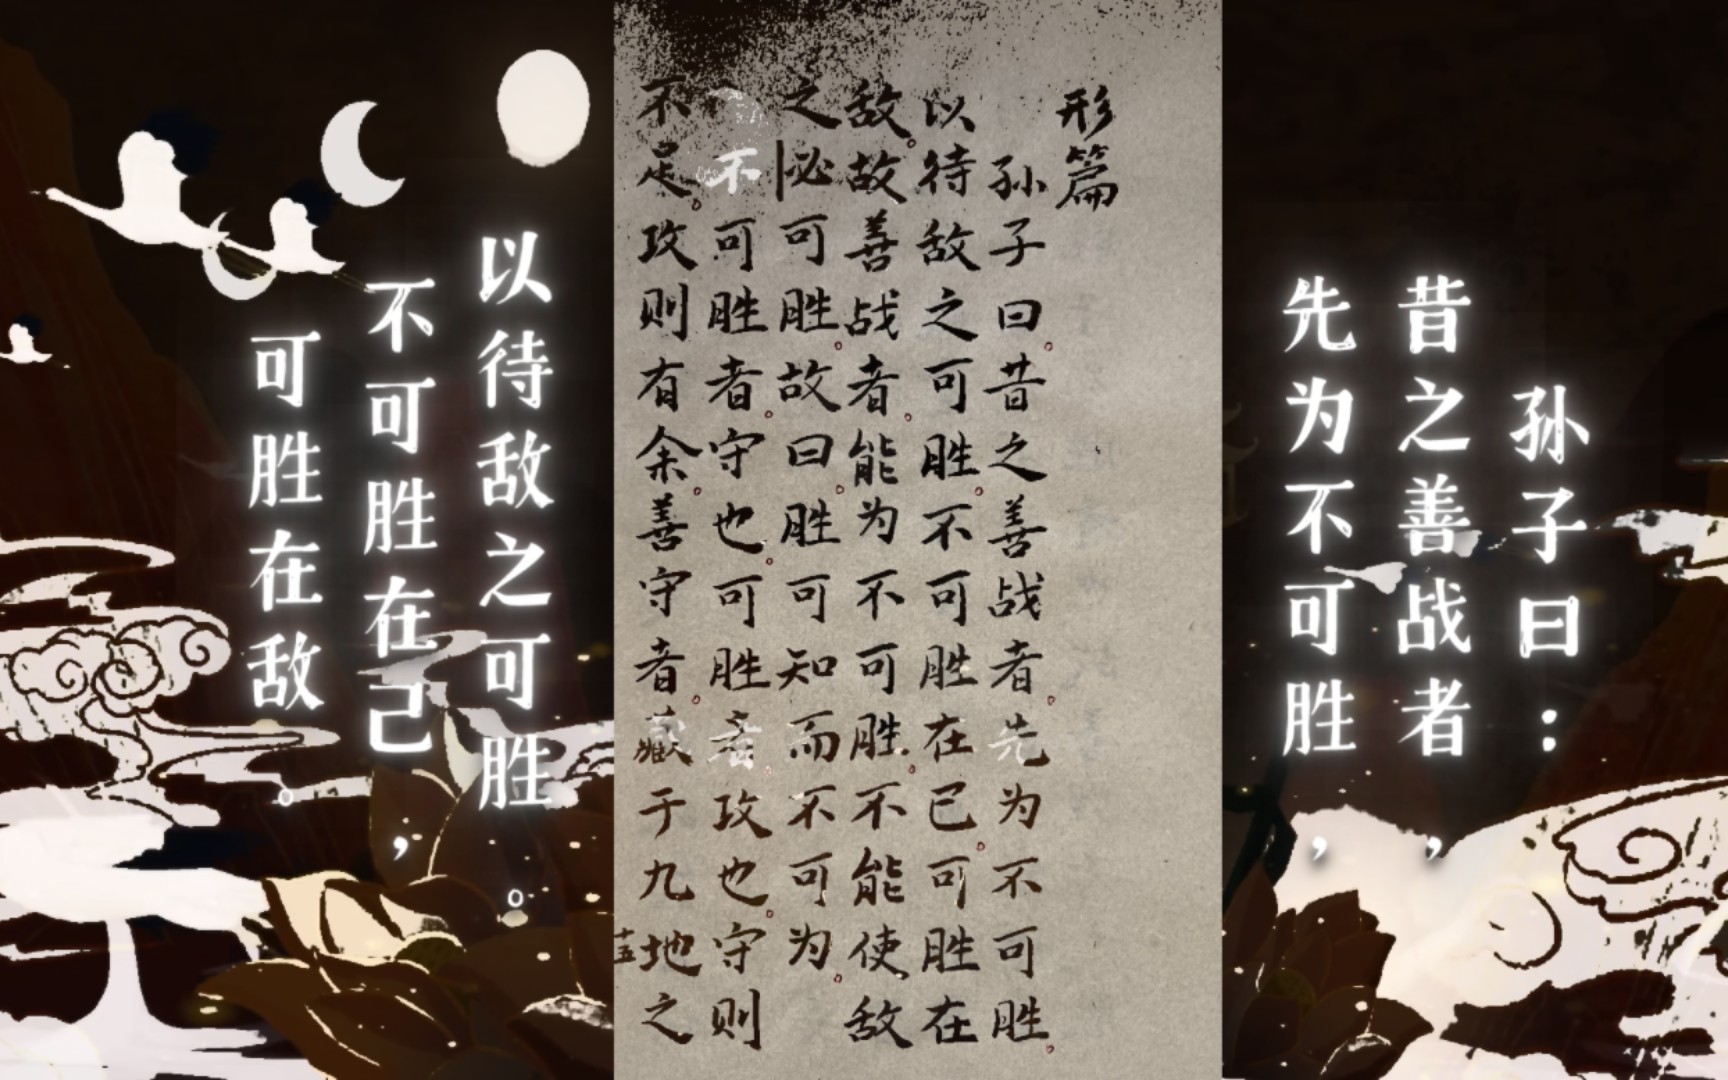 孙子曰：
昔之善战者，
先为不可胜，
形篇
孙子曰。昔之善战者。先为不可胜。
以待敌之可胜。不可胜在己。可胜在
敌。故善战者。能为不可胜。不能使敌
之必可胜。故曰。胜可知而不可为。
不可胜者。守也。可胜者。攻也。守则
不足。攻则有余。善守者。藏于九地之
十五
以待敌之可胜。
不可胜在己，
可胜在敌。